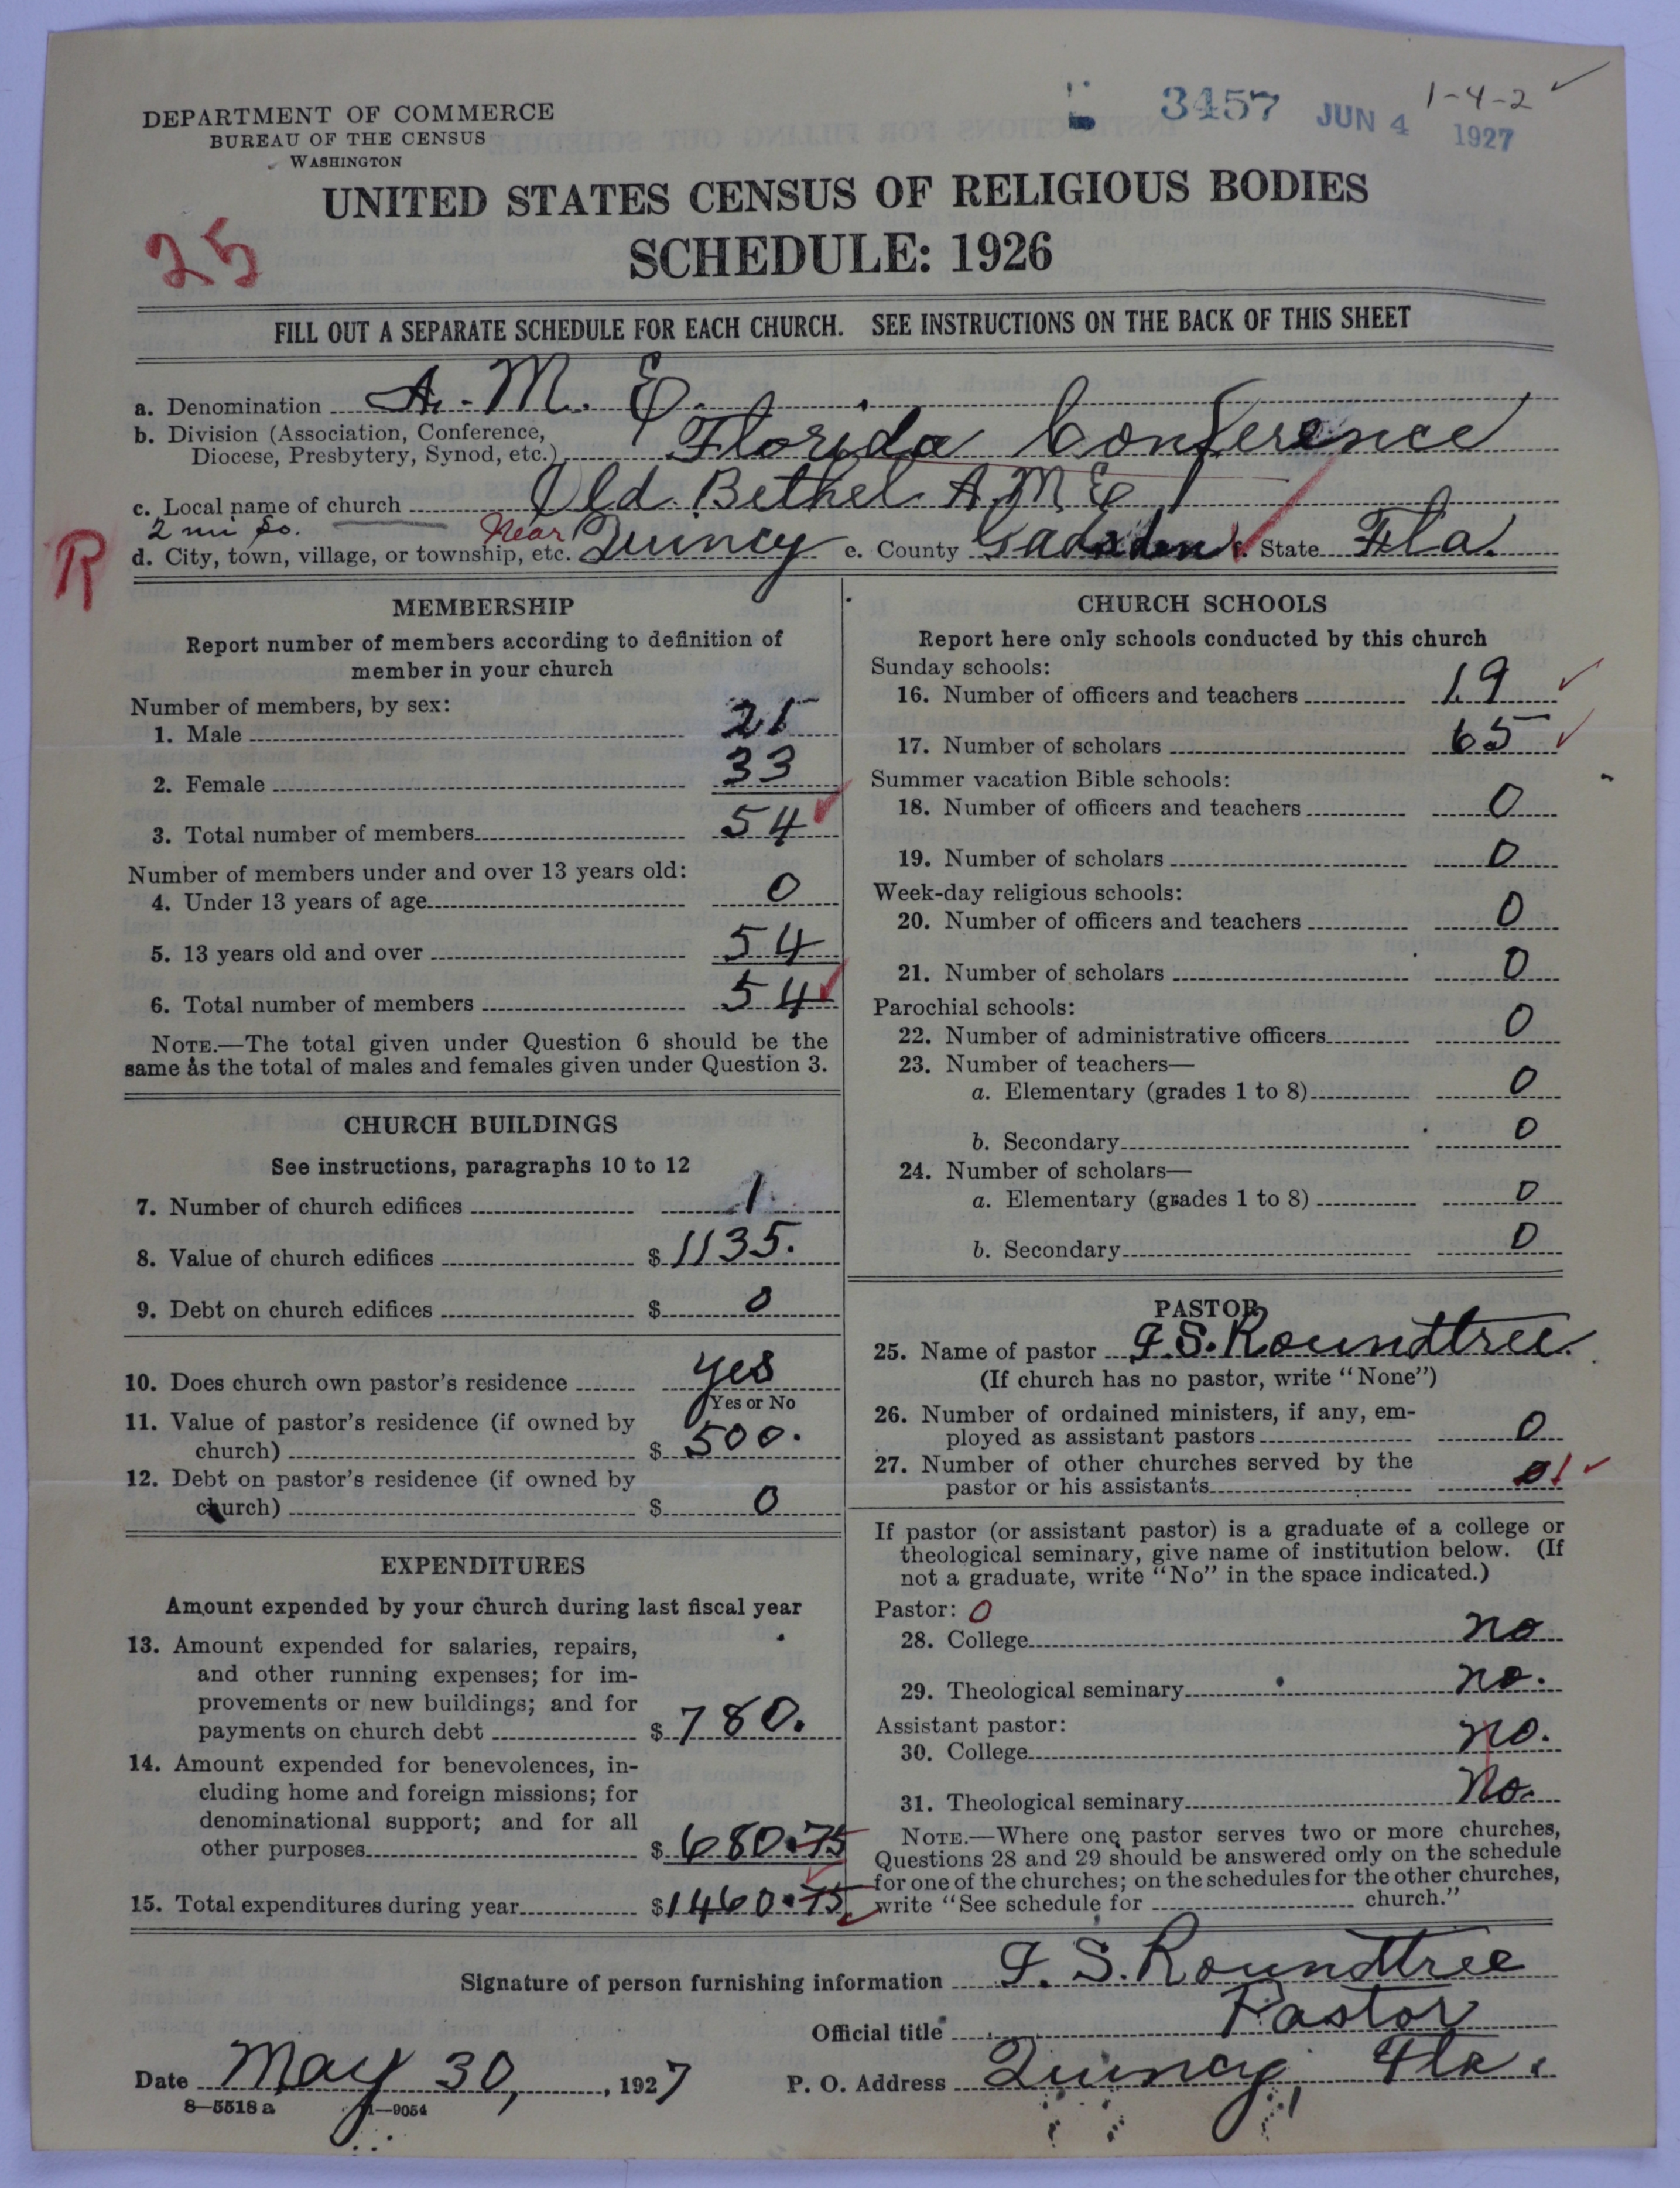 3457 JUN 4 1927
1-4-2 ✓
DEPARTMENT OF COMMERCE
BUREAU OF THE CENSUS
WASHINGTON
UNITED STATES CENSUS OF RELIGIOUS BODIES
25
SCHEDULE: 1926
FILL OUT A SEPARATE SCHEDULE FOR EACH CHURCH. SEE INSTRUCTIONS ON THE BACK OF THIS SHEET
a. Denomination A. M. E.
b. Division (Association, Conference,
Diocese, Presbytery, Synod, etc.) Florida Conference
c. Local name of church Old Bethel A. M. E
2 mi So. Near
R
d. City, town, village, or township, etc. Quincy e. County Gadsden f. State Fla.
MEMBERSHIP
Report number of members according to definition of
member in your church
Number of members, by sex:
1. Male 21
2. Female 33
3. Total number of members 54
Number of members under and over 13 years old:
4. Under 13 years of age 0
5. 13 years old and over 54
6. Total number of members 54
NOTE.—The total given under Question 6 should be the
same as the total of males and females given under Question 3.
CHURCH BUILDINGS
See instructions, paragraphs 10 to 12
7. Number of church edifices 1.
8. Value of church edifices $1135.
9. Debt on church edifices $ 0
10. Does church own pastor's residence yes
Yes or No
11. Value of pastor's residence (if owned by
church) $ 500.
12. Debt on pastor's residence (if owned by
church) $ 0
EXPENDITURES
Amount expended by your church during last fiscal year
13. Amount expended for salaries, repairs,
and other running expenses; for im-
provements or new buildings; and for
payments on church debt $ 780.
14. Amount expended for benevolences, in-
cluding home and foreign missions; for
denominational support; and for all
other purposes $ 680.75
15. Total expenditures during year $1460.75
CHURCH SCHOOLS
Report here only schools conducted by this church
Sunday schools:
16. Number of officers and teachers 19 ✓
17. Number of scholars 65 ✓
Summer vacation Bible schools:
18. Number of officers and teachers 0
19. Number of scholars 0
Week-day religious schools:
20. Number of officers and teachers 0
21. Number of scholars 0
Parochial schools:
22. Number of administrative officers 0
23. Number of teachers—
a. Elementary (grades 1 to 8) 0
b. Secondary 0
24. Number of scholars—
a. Elementary (grades 1 to 8) 0
b. Secondary 0
PASTOR
25. Name of pastor I. S. Roundtree.
(If church has no pastor, write "None")
26. Number of ordained ministers, if any, em-
ployed as assistant pastors 0
27. Number of other churches served by the
pastor or his assistants 0 1 ✓
If pastor (or assistant pastor) is a graduate of a college or
theological seminary, give name of institution below. (If
not a graduate, write "No" in the space indicated.)
Pastor: 0
28. College no
29. Theological seminary no.
Assistant pastor:
30. College no.
31. Theological seminary No.
NOTE.—Where one pastor serves two or more churches,
Questions 28 and 29 should be answered only on the schedule
for one of the churches; on the schedules for the other churches,
write "See schedule for church."
Signature of person furnishing information I. S. Roundtree
Official title Pastor
Date May 30, , 1927 P. O. Address Quincy, Fla.
8—5518 a 11—9054